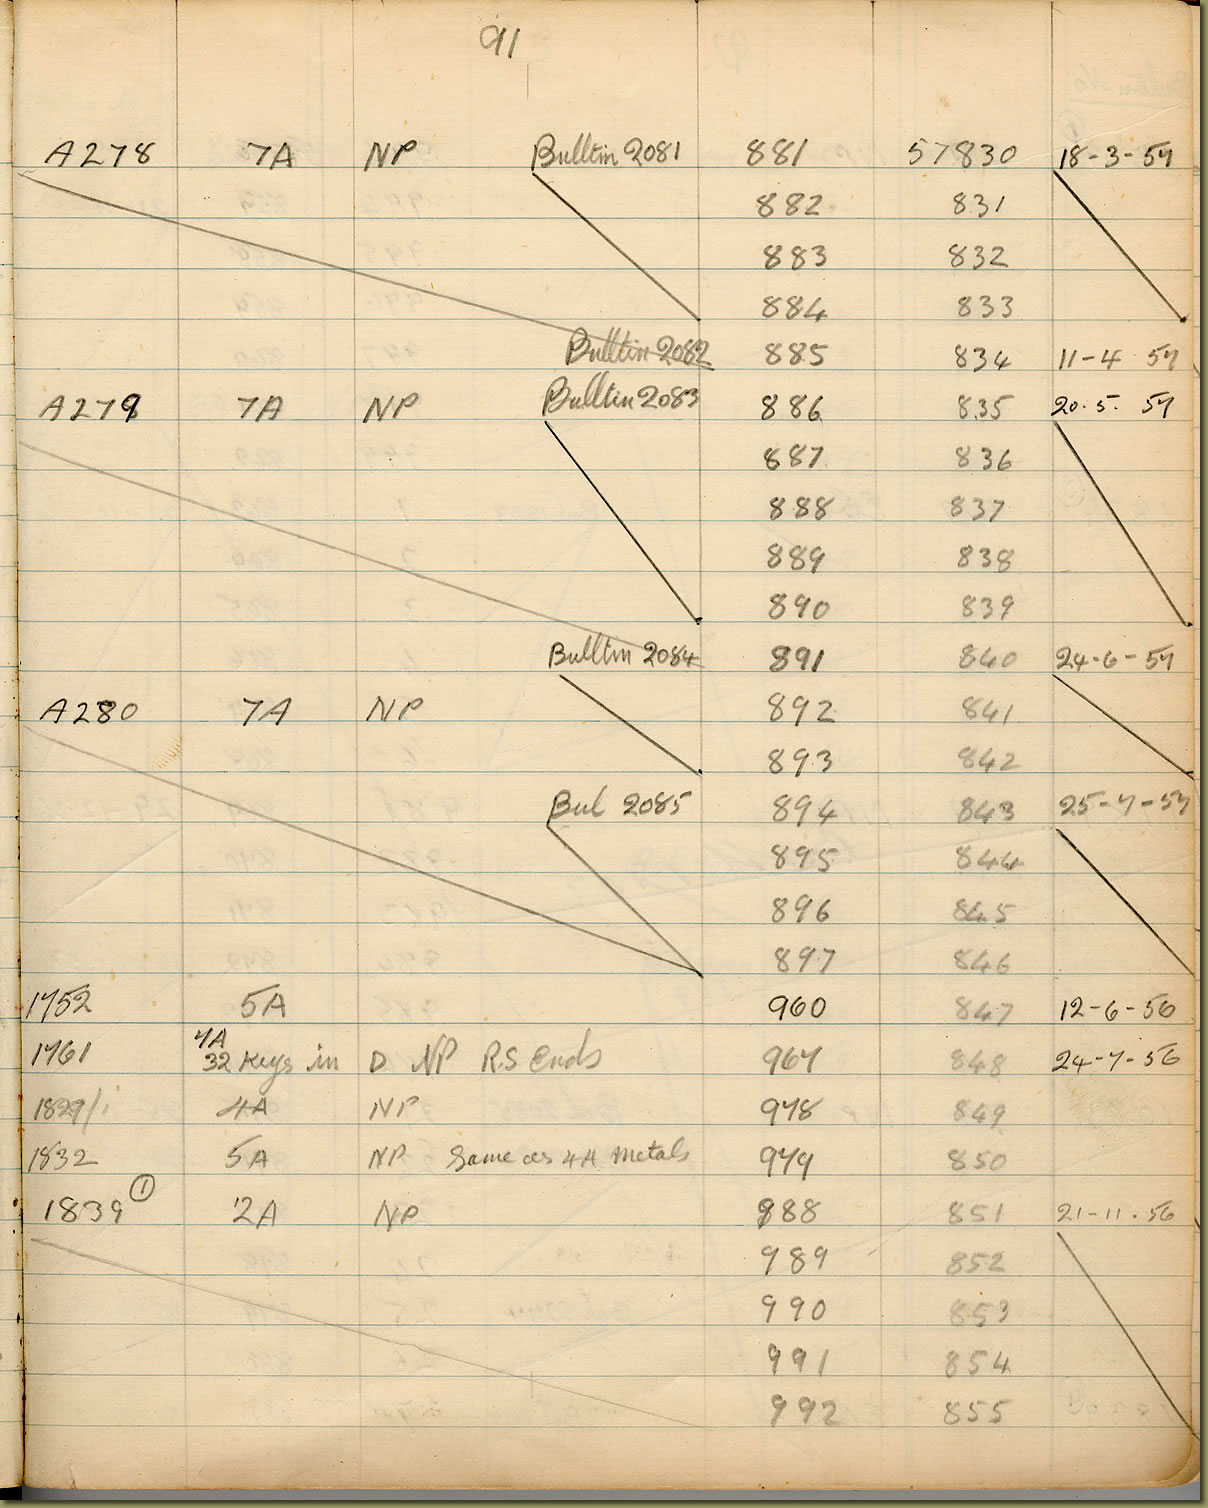 91
A278 7A NP Bulltin 2081 881 57830 18-3-57
882 831
883 832
884 833
Bulltin 2082 885 834 11-4 57
A279 7A NP Bulltin 2083 886 835 20.5. 57
887 836
888 837
889 838
890 839
Bulltin 2084 891 840 24-6-57
A280 7A NP 892 841
893 842
Bul 2085 894 843 25-7-57
895 844
896 845
897 846
1752 5A 960 847 12-6-56
1761 7A 32 Keys in D NP R.S Ends 967 848 24-7-56
1829/1 4A NP 978 849
1832 5A NP Same as 4A Metals 979 850
1839 ① 2A NP 988 851 21-11-56
989 852
990 853
991 854
992 855